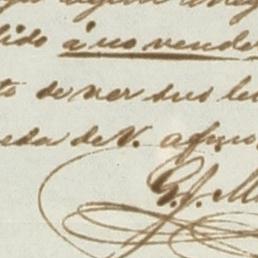 dido á no vender
to de ver sus le
eda de V. afmo.
G. J. M